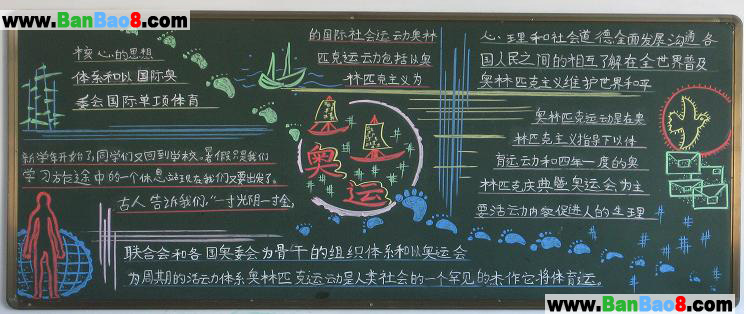 www.BanBao8.com
www.BanBao8.com
核心的思想
体系和以国际奥
委会国际单项体育
的国际社会运动奥林
匹克运动包括以奥
林匹克主义为
心、理和社会道德全面发展沟通各
国人民之间的相互了解在全世界普及
奥林匹克主义维护世界和平
奥林匹克运动是在奥
林匹克主义指导下以体
育运动和四年一度的奥
林匹克庆典暨奥运会为主
要活动内容促进人的生理
新学年开始了,同学们又回到学校。暑假只是我们
学习旅途中的一个休息站现在我们又要出发了。
古人告诉我们,“一寸光阴一寸金,
奥运
联合会和各国奥委会为骨干的组织体系和以奥运会
为周期的活动体系奥林匹克运动是人类社会的一个罕见的杰作它将体育运。
www.BanBao8.com